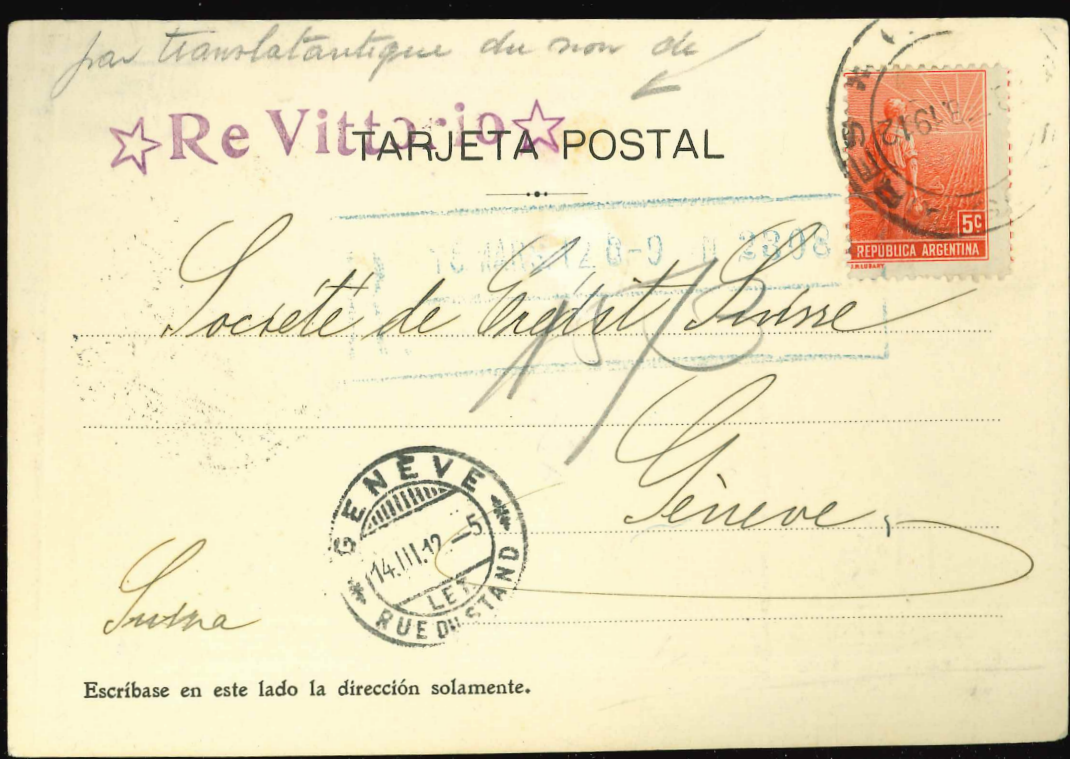 par translatantique du non de
☆Re Vittorio☆
TARJETA POSTAL
1912
5c
REPUBLICA ARGENTINA
15 MARS 12 8-9 2308
Société de Crédit Suisse
Génève,
GENÈVE
14.III.12 –5
LET.
RUE DU STAND
Suisa
Escríbase en este lado la dirección solamente.